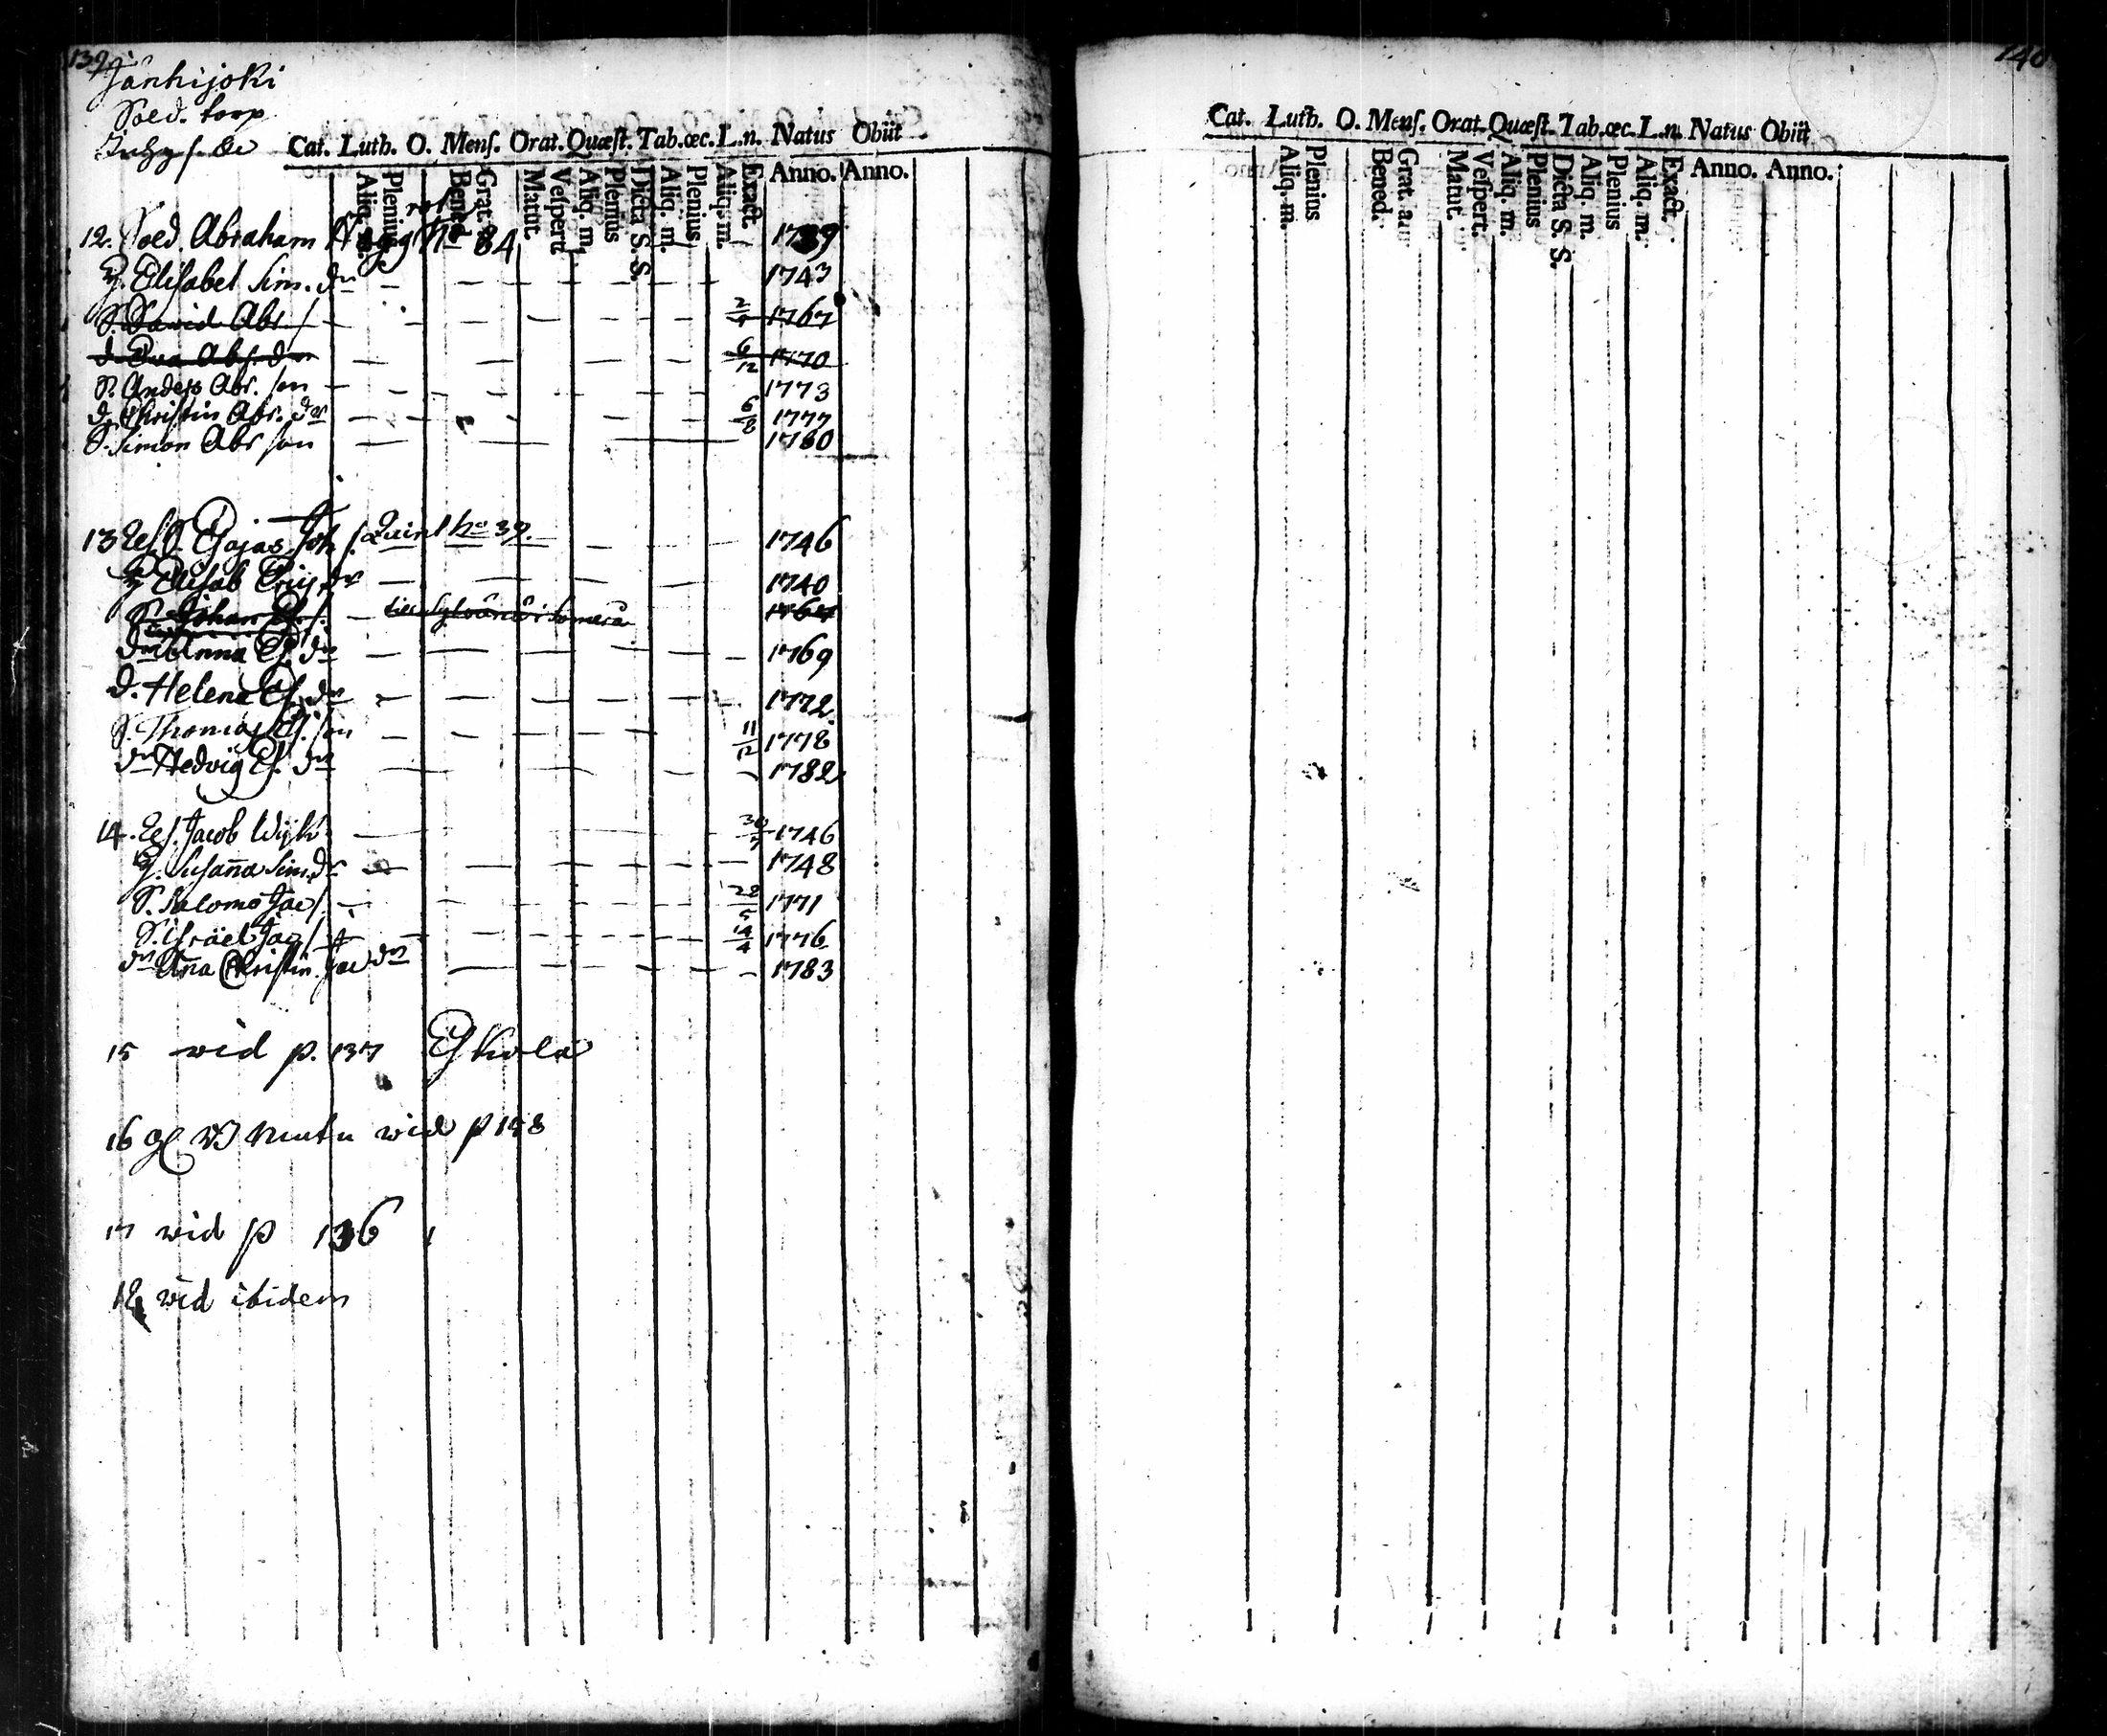 139
Jänhijoki
Sold. torp
Cat. Luth. O. Mens. Orat. Quæst. Tab. œc. L.n. Natus Obiit
Aliq. m. Plenius Bened. Grat. Matut. Vespert. Aliq. m. Plenius Dicta S. S. Aliq. m. Plenius Aliq. m. Exact. Anno. Anno.
12. Sold. Abraham Hägg No 84 1739
H. Elisabet Sim. dr 1743
S. David Abr. s 2/4 1767
d. Eva Abr. dr 6/12 1770
S. Anders Abr. son 1773
d. Christin Abr. dr 6/8 1777
S. Simon Abr son 1780
13 Ref. S. Esajas Joh s. Quint No 39. 1746
H Elisab Eric dr 1740
S. Johan Es. s. Somero 1764
dr Anna Es. dr 1769
d. Helena Es. dr 1772
S. Thomas Es. son 11/12 1778
dr Hedvig Es. dr 1782
14. Ref. Jacob Wijk 30/7 1746
H. Susaña Sim. dr 1748
S. Salomo Jac s. 28/5 1771
S. Israël Jac s 14/4 1776
dr Aña Christin Jac dr 1783
15 vid p. 137 Eskola
16 vid p 158
17 vid p 136
18 vid ibidem
140
Cat. Luth. O. Mens. Orat. Quæst. Tab. œc. L.n. Natus Obiit
Aliq. m. Plenius Bened. Grat. Matut. Vespert. Aliq. m. Plenius Dicta S. S. Aliq. m. Plenius Aliq. m. Exact. Anno. Anno.